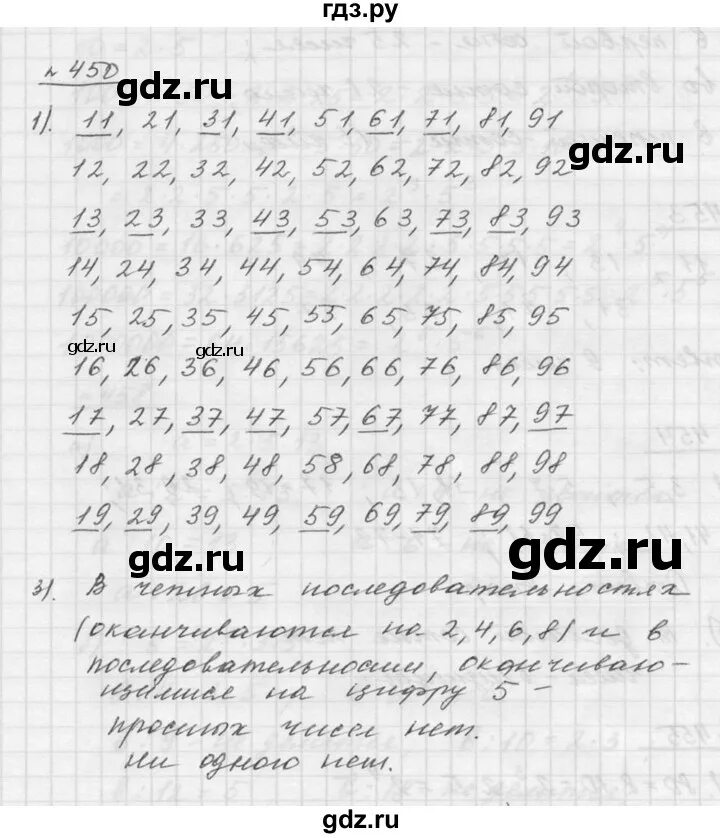 гдз.ру
№ 450
gdz.ru
gdz.ru
1). 11, 21, 31, 41, 51, 61, 71, 81, 91
gdz.ru
12, 22, 32, 42, 52, 62, 72, 82, 92
13, 23, 33, 43, 53, 63, 73, 83, 93
14, 24, 34, 44, 54, 64, 74, 84, 94
15, 25, 35, 45, 55, 65, 75, 85, 95
gdz.ru
gdz.ru
16, 26, 36, 46, 56, 66, 76, 86, 96
17, 27, 37, 47, 57, 67, 77, 87, 97
18, 28, 38, 48, 58, 68, 78, 88, 98
19, 29, 39, 49, 59, 69, 79, 89, 99
gdz.ru
gdz.ru
3). В четных последовательностях
(оканчиваются на 2, 4, 6, 8) и в
последовательности, оканчиваю-
щимися на цифру 5 -
простых чисел нет.
ни одного нет.
gdz.ru